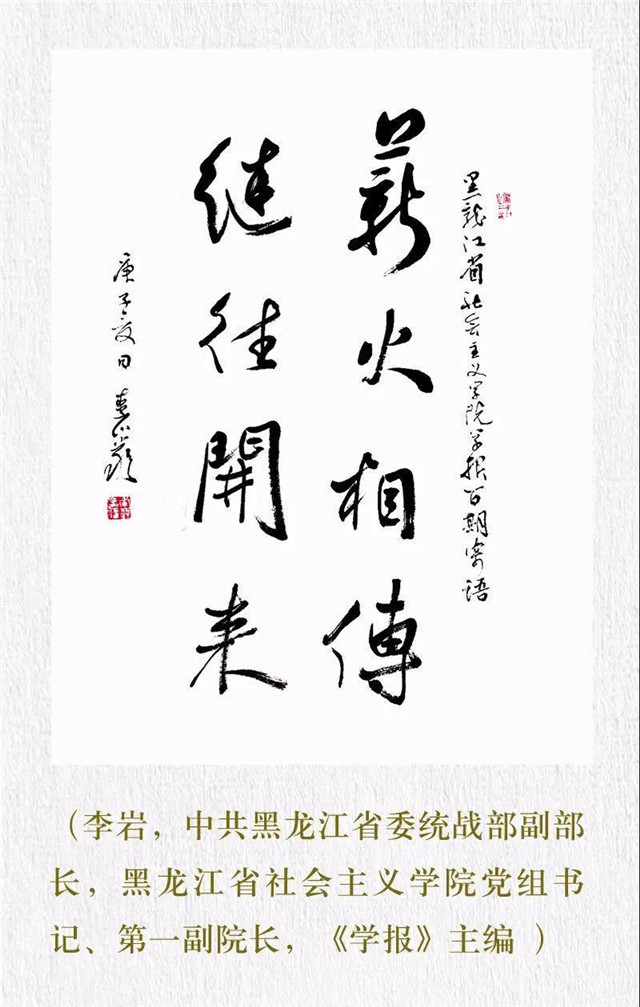 黑龙江省社会主义学院学报百期寄语
薪火相傳
继往開来
庚子夏日
（李岩，中共黑龙江省委统战部副部
长，黑龙江省社会主义学院党组书
记、第一副院长，《学报》主编 ）